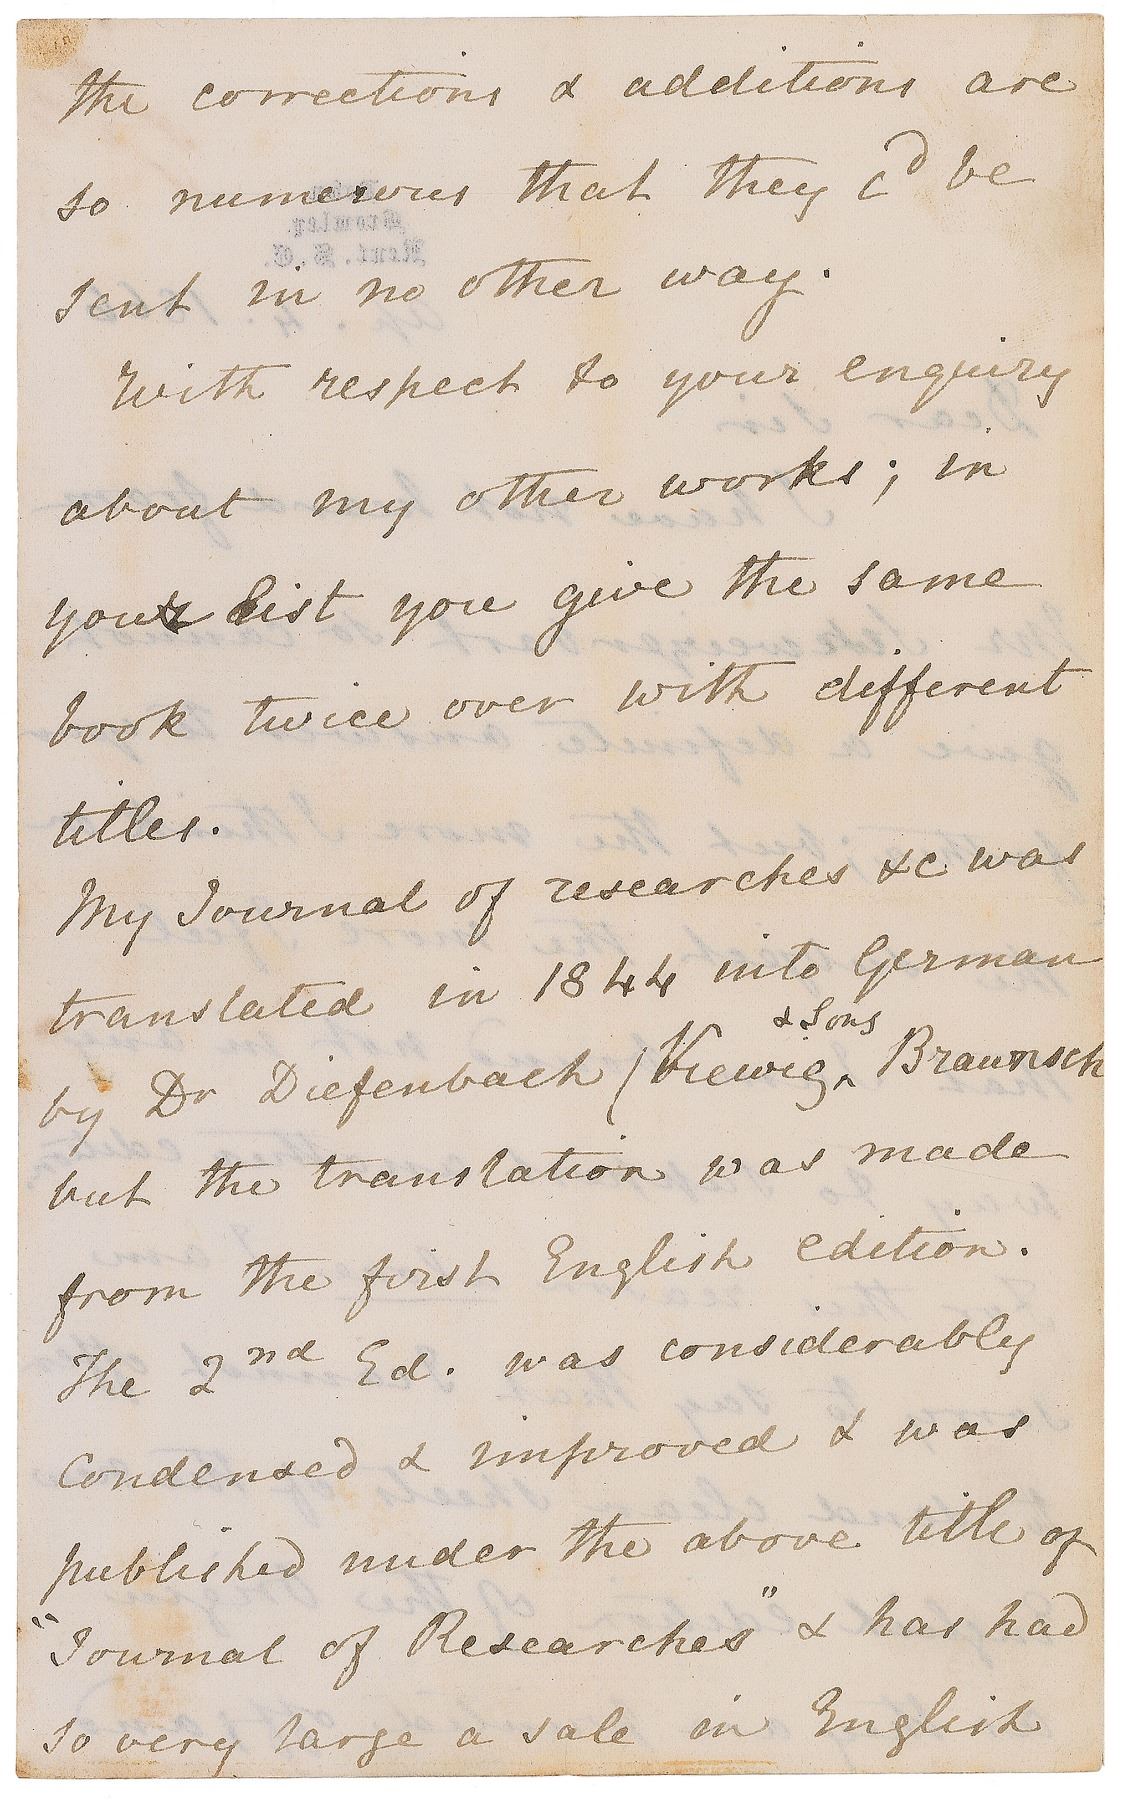 the corrections & additions are
so numerous that they c^d be
sent in no other way.
With respect to your enquiry
about my other works; in
your list you give the same
book twice over with different
titles.
My Journal of researches &c was
translated in 1844 into German
& Sons
by Dr Diefenbach (Viewig, Braunsch
but the translation was made
from the first English edition.
The 2nd Ed. was considerably
condensed & improved & was
published under the above title of
"Journal of Researches" & has had
so very large a sale in English